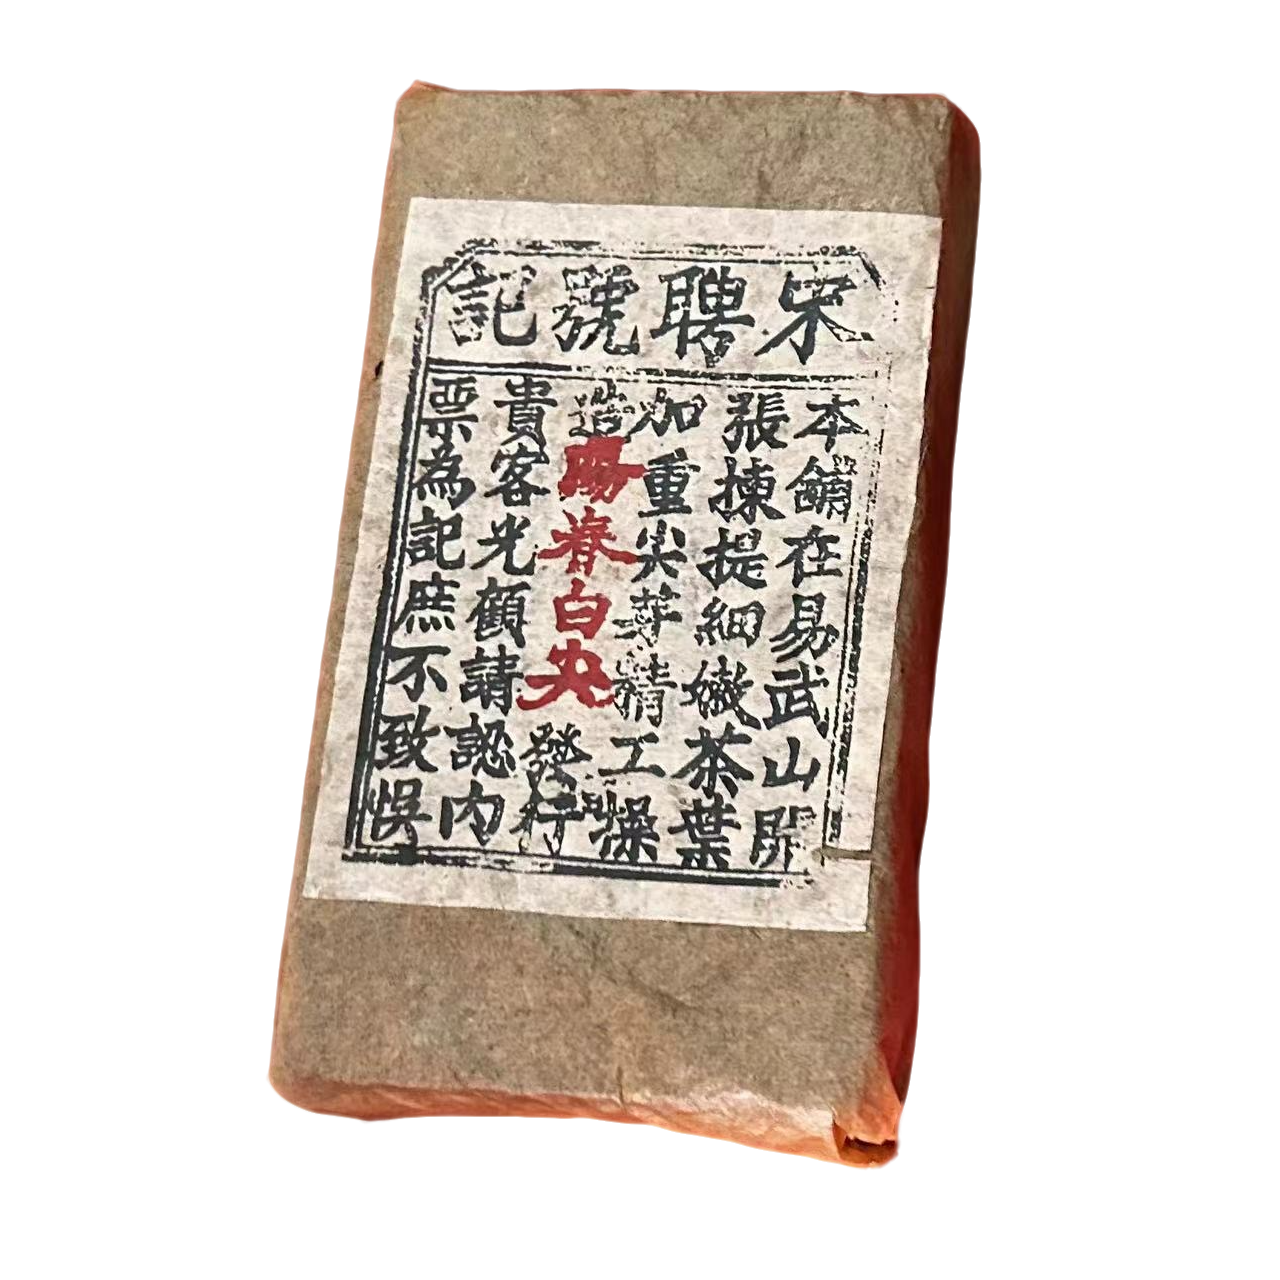 宋聘號記
本鋪在易武山開
張揀提細嫩茶葉
加重尖芽精工燥
造陽春白尖發行
貴客光顧請認內
票為記庶不致悞